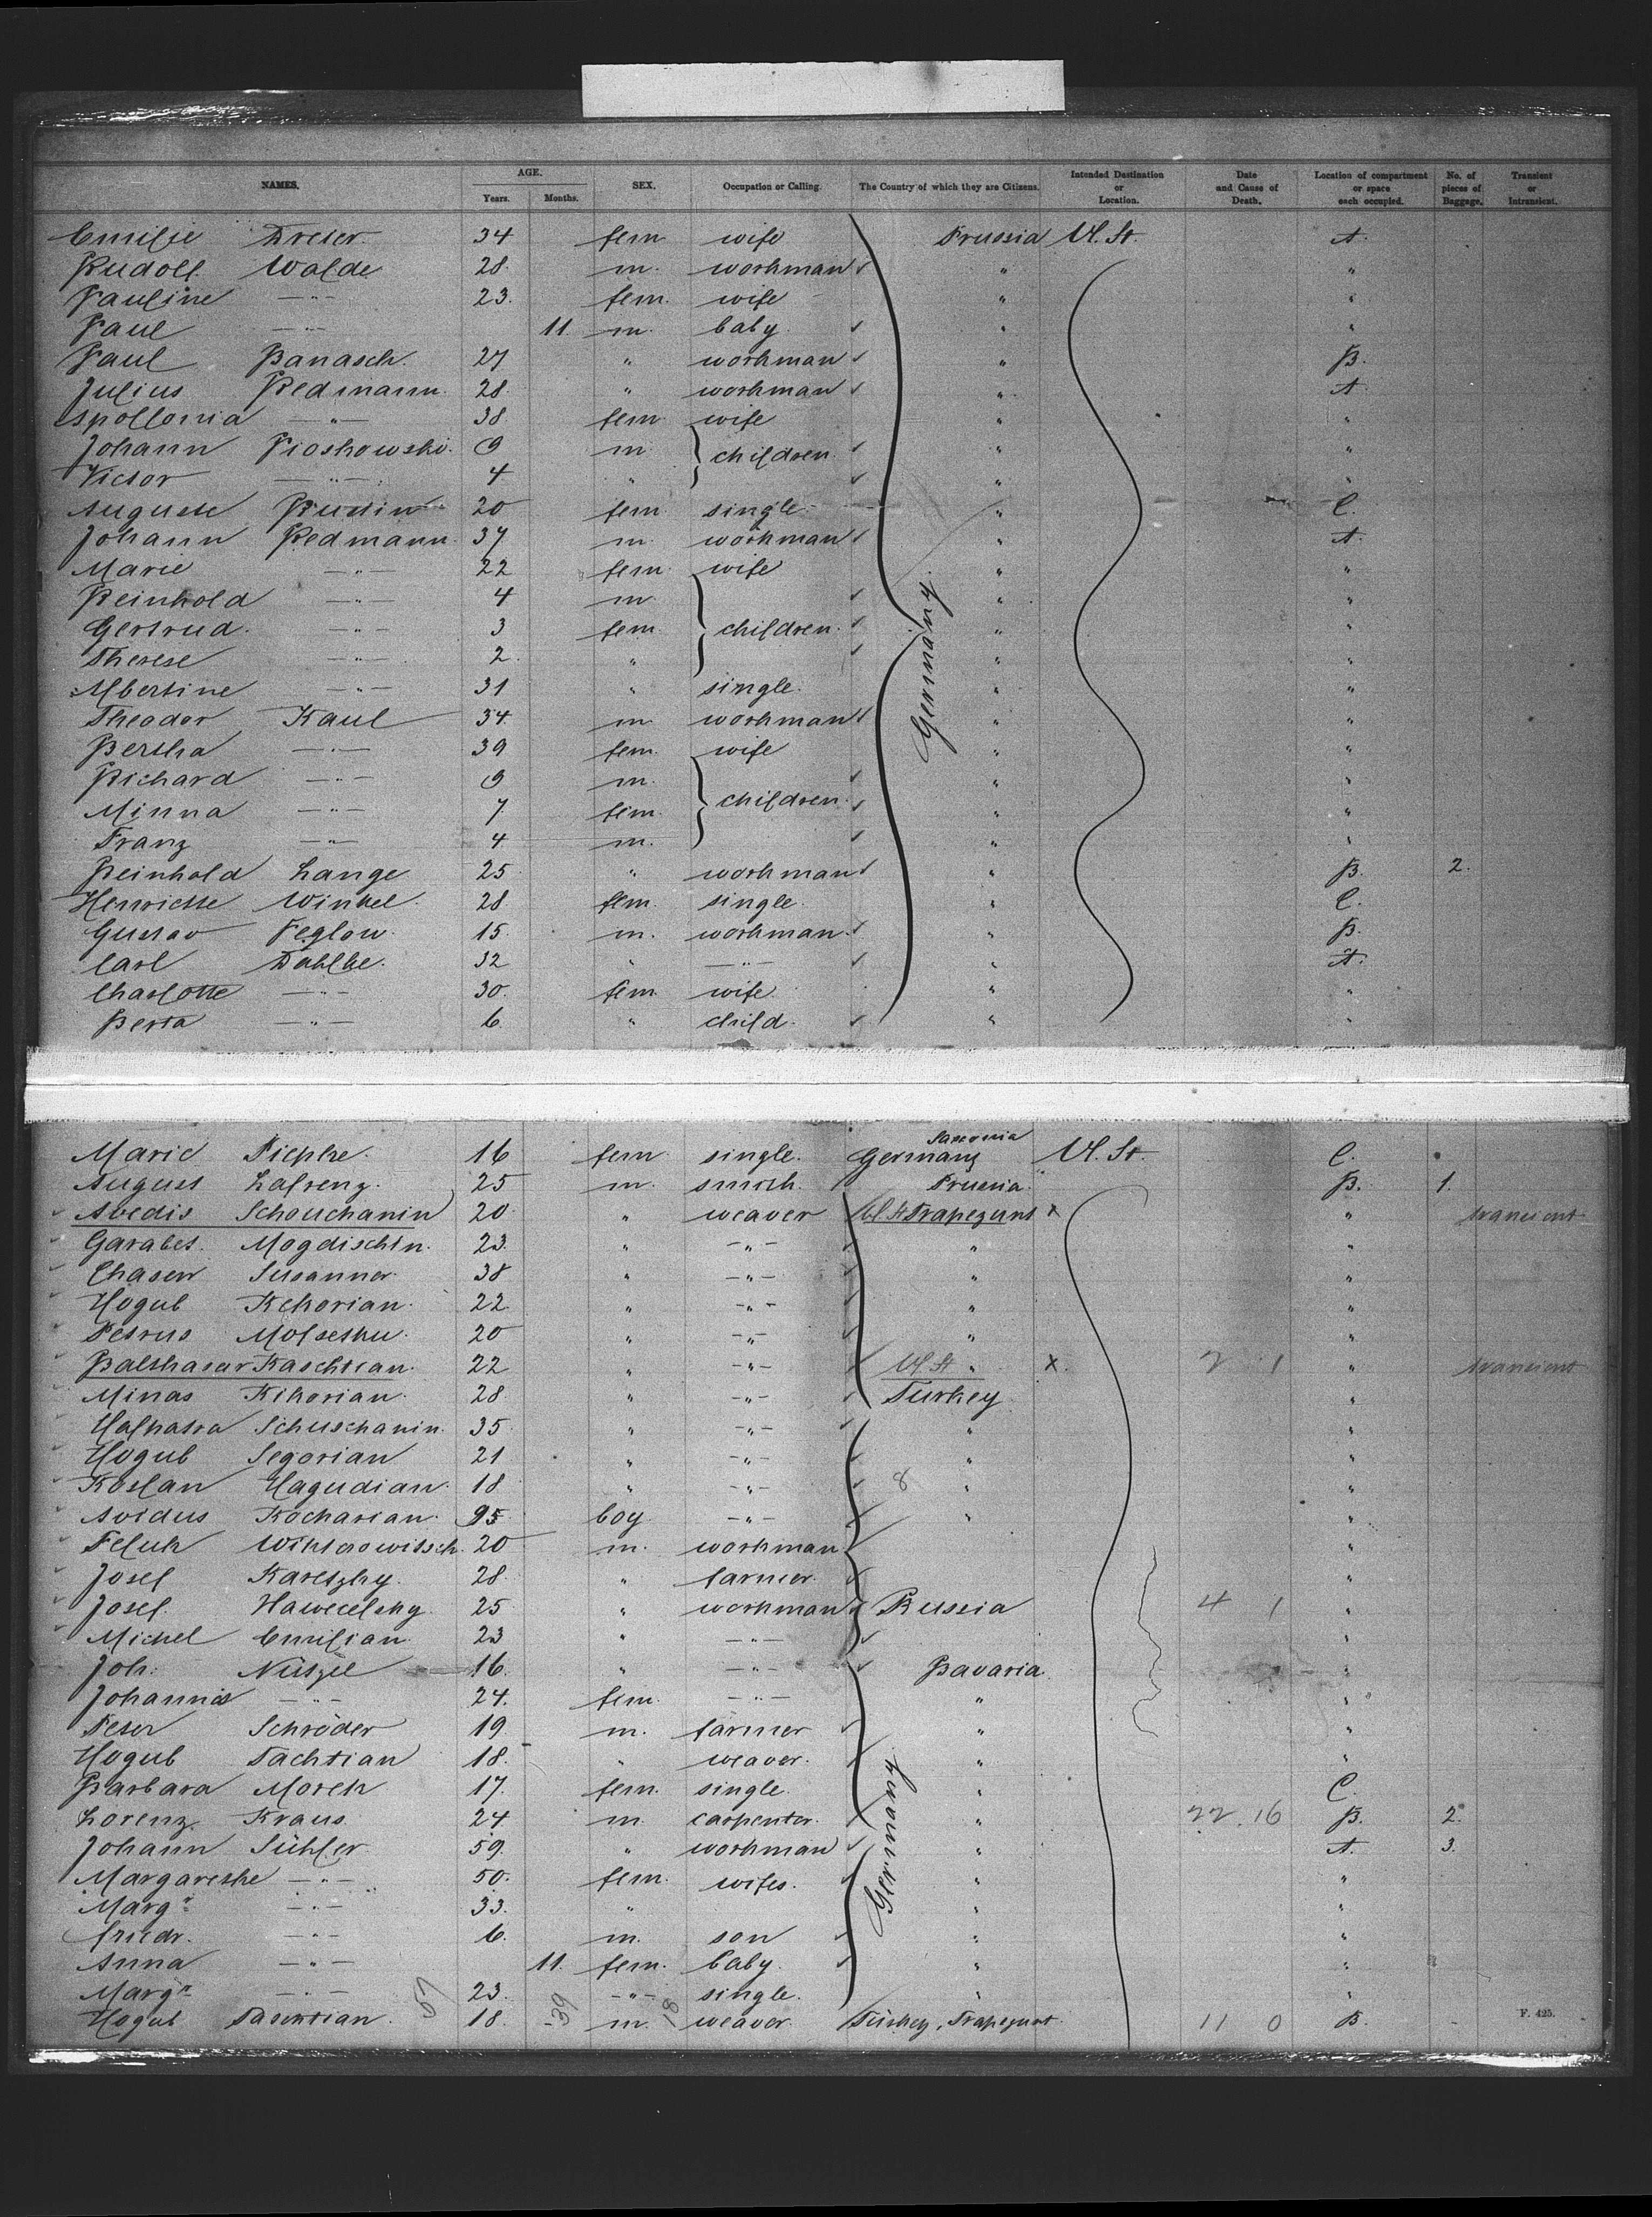 NAMES. AGE. Years. Months. SEX. Occupation or Calling. The Country of which they are Citizens. Intended Destination or Location. Date and Cause of Death. Location of compartment or space each occupied. No. of pieces of Baggage. Transient or Intransient.
Emilie Dreser 34 fem wife Prussia U. St. A.
Rudolf Walde 28 m. workman " "
Pauline —"— 23. fem. wife " "
Paul —"— 11. m. baby " "
Paul Banasch. 27 " workman " B.
Julius Redmann 28. " workman " A.
Apollonia —"— 38. fem wife " "
Johann Pioskowski. 9 m children " "
Victor —"— 4 " " "
Auguste 20 fem single " C.
Johann Redmann 37 m. workman " A.
Marie —"— 22 fem. wife " "
Reinhold —"— 4 m " "
Gertrud. —"— 3 fem children. Germany. " "
Therese —"— 2. " " "
Albertine —"— 31 " single. " "
Theodor Kaul 34. m. workman " "
Bertha —"— 39 fem. wife " "
Richard —"— 9 m. " "
Minna —"— 7 fem. children. " "
Franz —"— 4 m. " "
Reinhold Lange 25 " workman " B. 2.
Henriette Winkel 28. fem. single. " C.
Gustav Feglow. 15 m. workman. " B.
Carl Dahlke. 32 " —"— " A.
Charlotte —"— 30. fem. wife. " "
Berta —"— 6. " child. " "
Marie Piepke. 16 fem single. Saxonia Germany U. St. C.
August Lafrenz. 25 m. smith. Prussia. B. 1.
Avedis Schouchanin 20 " weaver U St Trapezunt x " transient
Garabet. Mogdischin. 23. " —"— " "
Chasen Susanner 38 " —"— "
Hogub Kekorian. 22. " —"— " "
Petrus 20 " —"— " "
Balthasar Kaschtian. 22 " —"— U St " x. 2 1 " transient
Minas Kikorian. 28 " —"— Turkey "
Schuschanin. 35 " —"— " "
Hogub Segorian 21 " —"— " "
Koslan Hagudian. 18 " —"— 8 " "
Avidus Kocharian. 95 boy —"— " "
20 m. workman "
Josef Karetzky. 28. " farmer. "
Josef. 25 " workman Russia 4 1 "
Michel Emilian. 23 " —"— "
Joh. Nützel 16. " —"— Bavaria. "
Johannis —"— 24. fem. —"— " "
Peter Schröder 19. m. farmer " "
Hogub Tachtian 18. " weaver. " "
Barbara Morek 17. fem. single. " C.
Lorenz. Kraus. 24. m carpenter. " 22. 16 B. 2.
Johann Sühler 59. " workman " A. 3.
Margarethe —"— 50. fem. wifes. Germany " "
Margr. —"— 33. " " "
friedr. —"— 6. m. son " "
Anna —"— 11. fem. baby. " "
Margr. —"— 23. —"— single. " "
Hogub 18. m. weaver. Turkey, Trapezunt. 11 0 B.
F. 425.